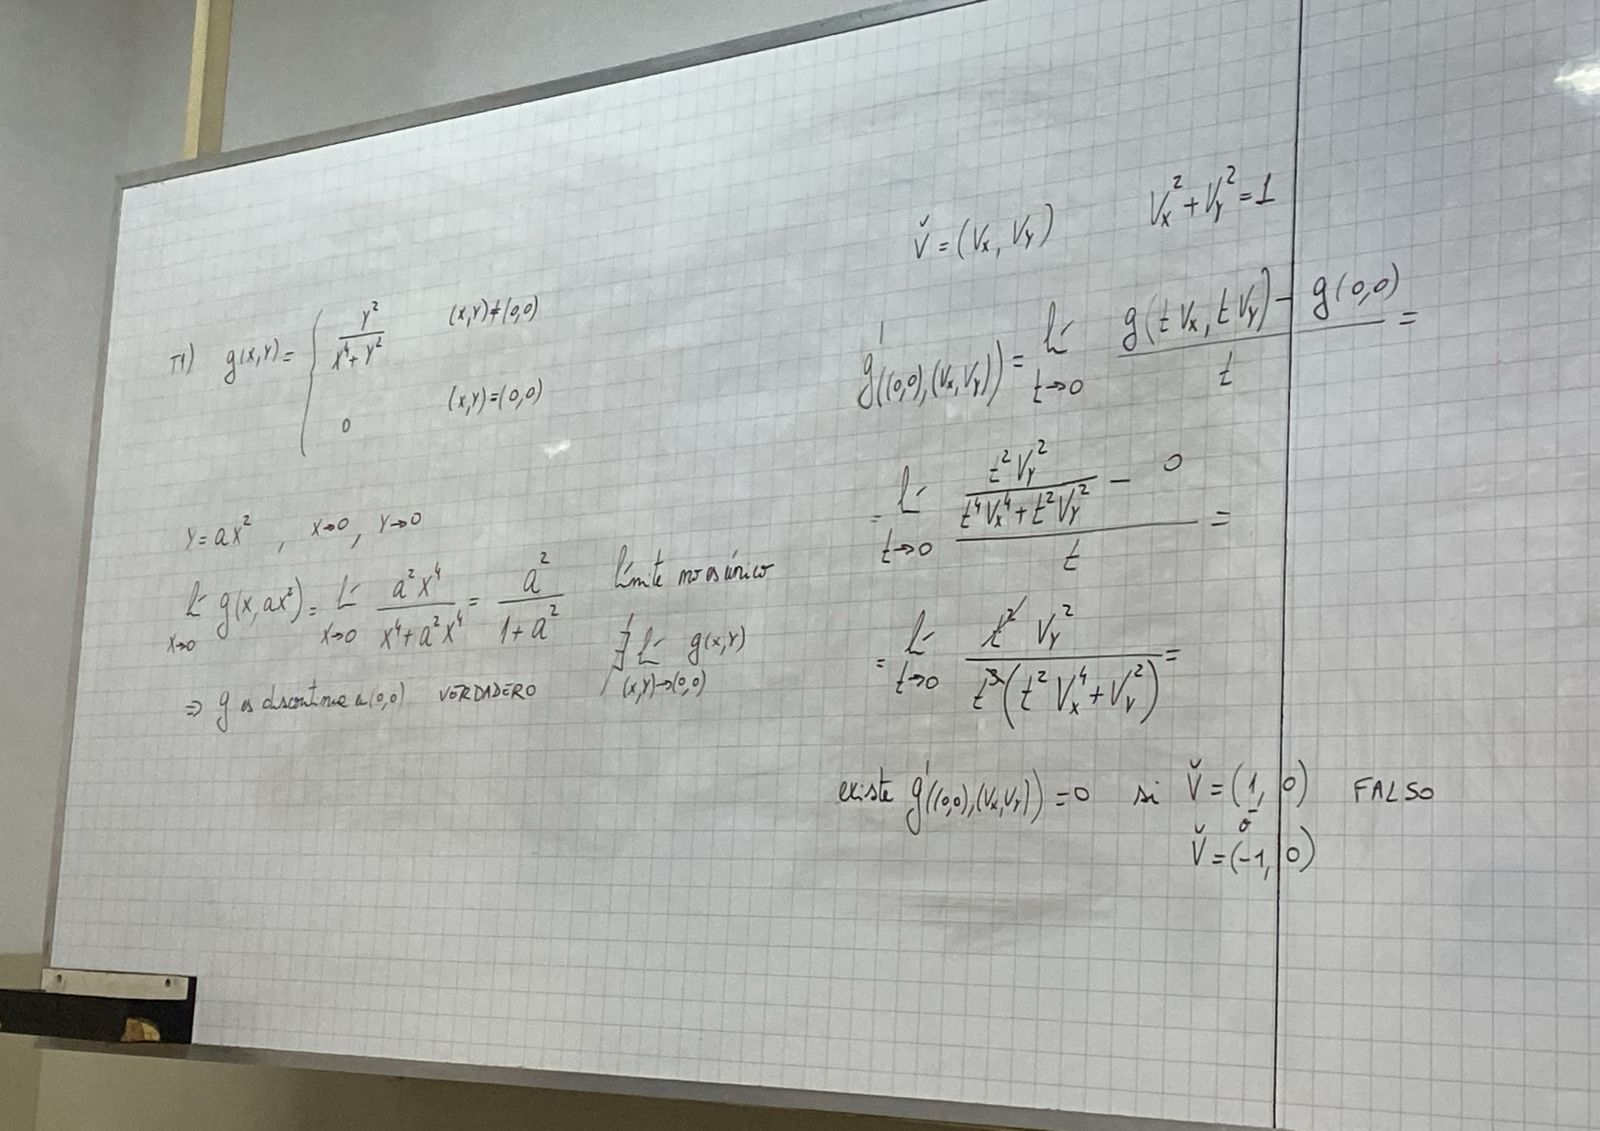 T1) g(x,y) = { y²/(x⁴+y²) (x,y)≠(0,0)
0 (x,y)=(0,0)
y=ax² , x→0, y→0
Lí x→0 g(x,ax²) = Lí x→0 a²x⁴/(x⁴+a²x⁴) = a²/(1+a²) límite no es único
∄ Lí (x,y)→(0,0) g(x,y)
⇒ g es discontinua en (0,0) VERDADERO
v̌ = (Vx, Vy) Vx²+Vy²=1
g'((0,0),(Vx,Vy)) = Lí t→0 (g(tVx, tVy) - g(0,0))/t =
= Lí t→0 (t²Vy²/(t⁴Vx⁴+t²Vy²) - 0)/t =
= Lí t→0 t² Vy²/(t³(t²Vx⁴+Vy²)) =
existe g'((0,0),(Vx,Vy)) = 0 si v̌ = (1, 0) FALSO
o
v̌ = (-1, 0)